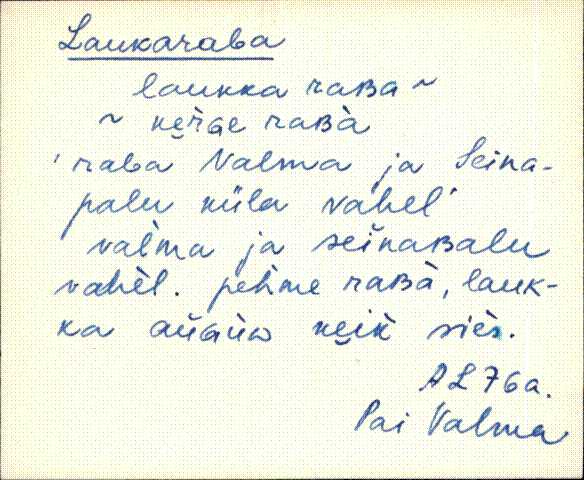 Laukaraba
laukka raʙa ~
~ ke̮r̀ge raʙà
'raba Valma ja Seina-
palu küla vahel'
val̀ma ja seǐnaʙalu
vahèl. peh̀me raʙà, lauk-
ka ke̮ik̀ siès.
AL 76a.
Pai Valma